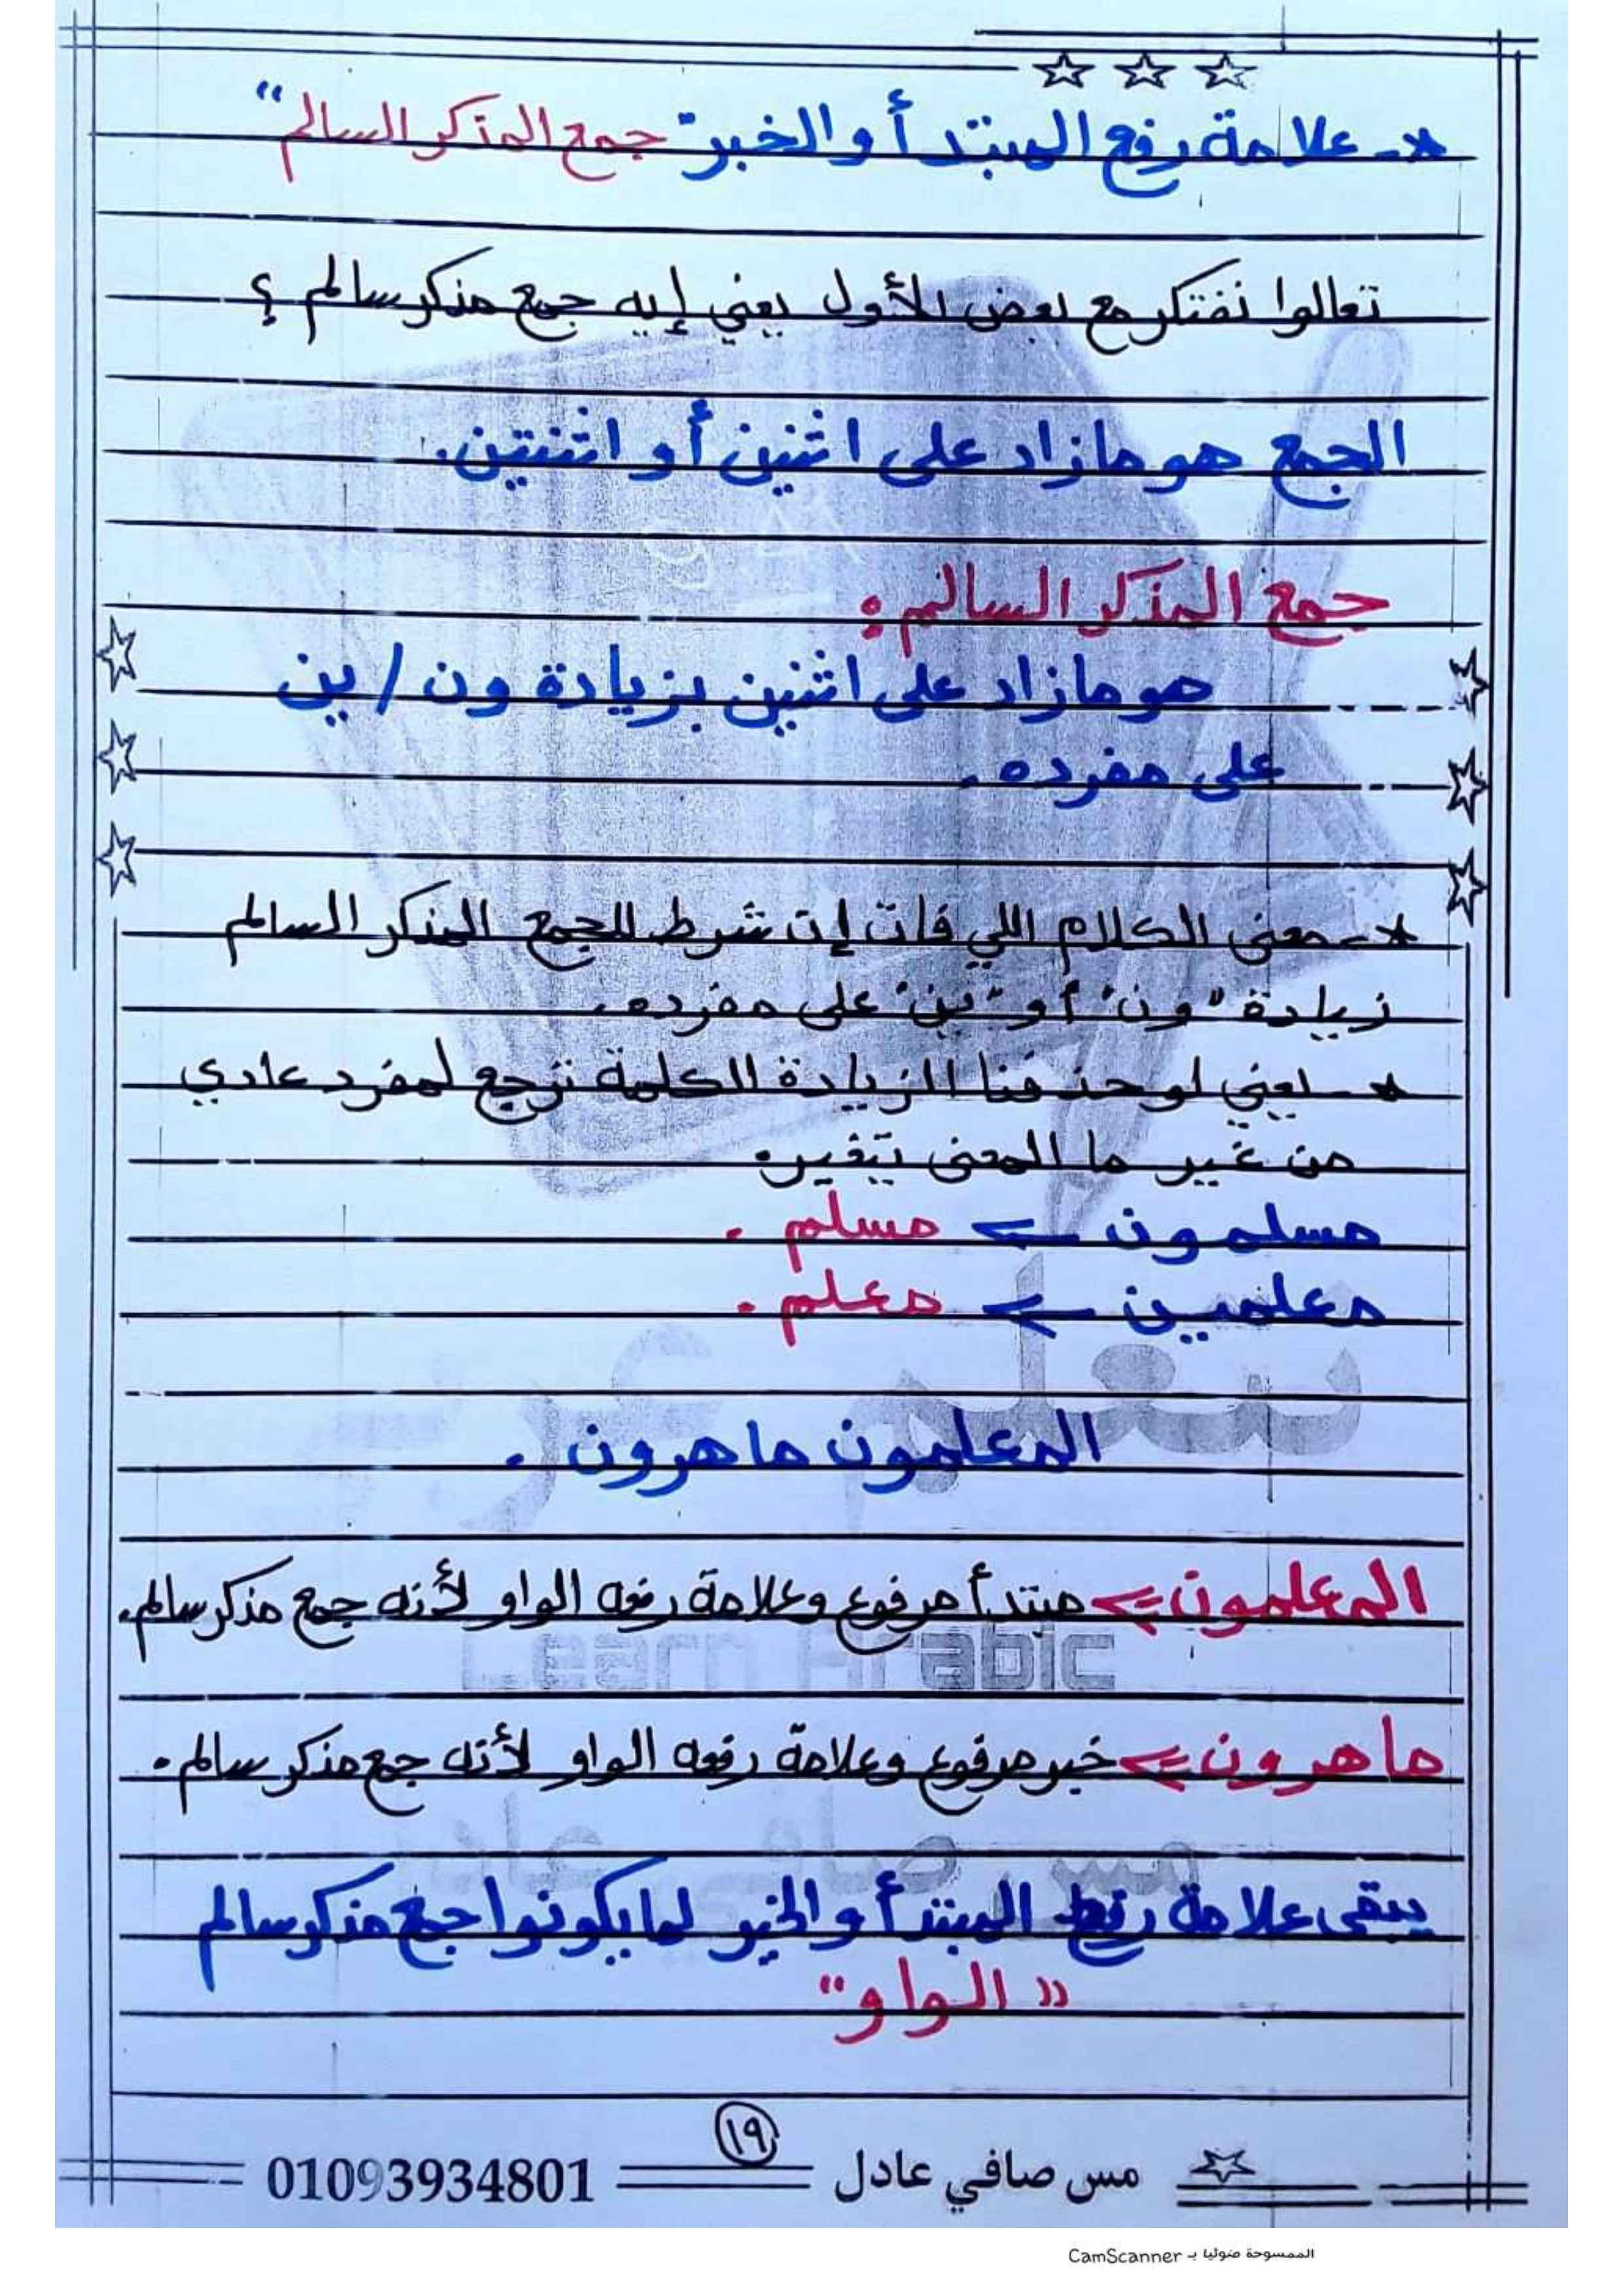 *- علامة رفع المبتدأ والخبر "جمع المذكر السالم"
تعالوا نفتكر مع بعض الأول يعني إيه جمع مذكر سالم ؟
الجمع هو مازاد على اثنين أو اثنتين.
جمع المذكر السالم :
هو مازاد على اثنين بزيادة ون / ين
على مفرده .
*- معنى الكلام اللي فات إن شرط الجمع المذكر السالم
زيادة "ون" أو "ين" على مفرده.
*- يعني لو حذفنا الزيادة الكلمة ترجع لمفرد عادي
من غير ما المعنى يتغير.
مسلمون ← مسلم .
معلمين ← معلم .
المعلمون ماهرون .
المعلمون ← مبتدأ مرفوع وعلامة رفعه الواو لأنه جمع مذكر سالم.
Learn Arabic
ماهرون ← خبر مرفوع وعلامة رفعه الواو لأنه جمع مذكر سالم .
مس صافي عادل
يبقى علامة رفع المبتدأ والخبر لما يكونوا جمع مذكر سالم
"الواو"
١٩
مس صافي عادل 01093934801
الممسوحة ضوئيا بـ CamScanner